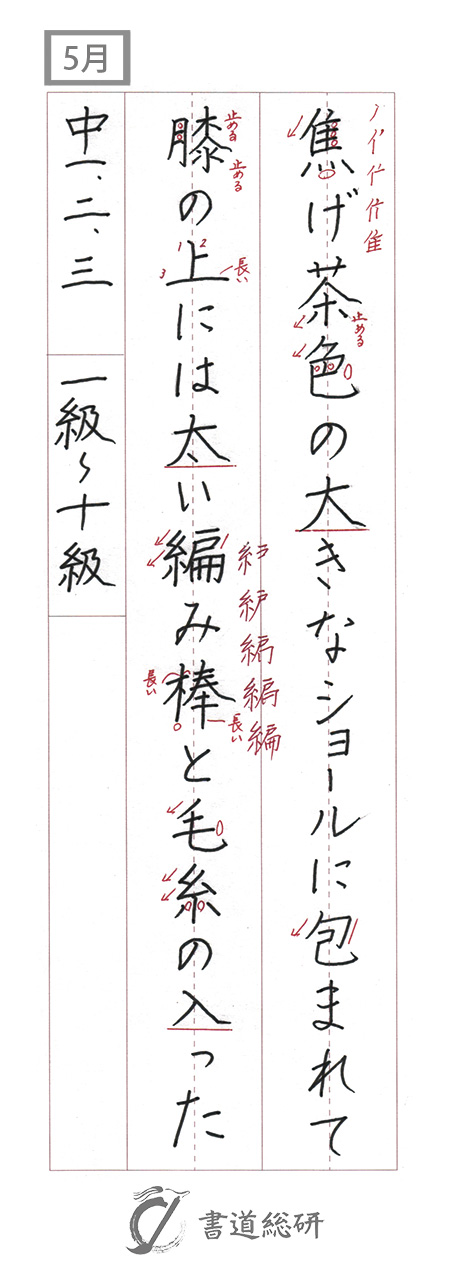 5月
焦げ茶色の大きなショールに包まれて
止める
膝の上には太い編み棒と毛糸の入った
止める
止める
長い
1 2
3
編
長い
長い
中一、二、三
一級〜十級
書道総研